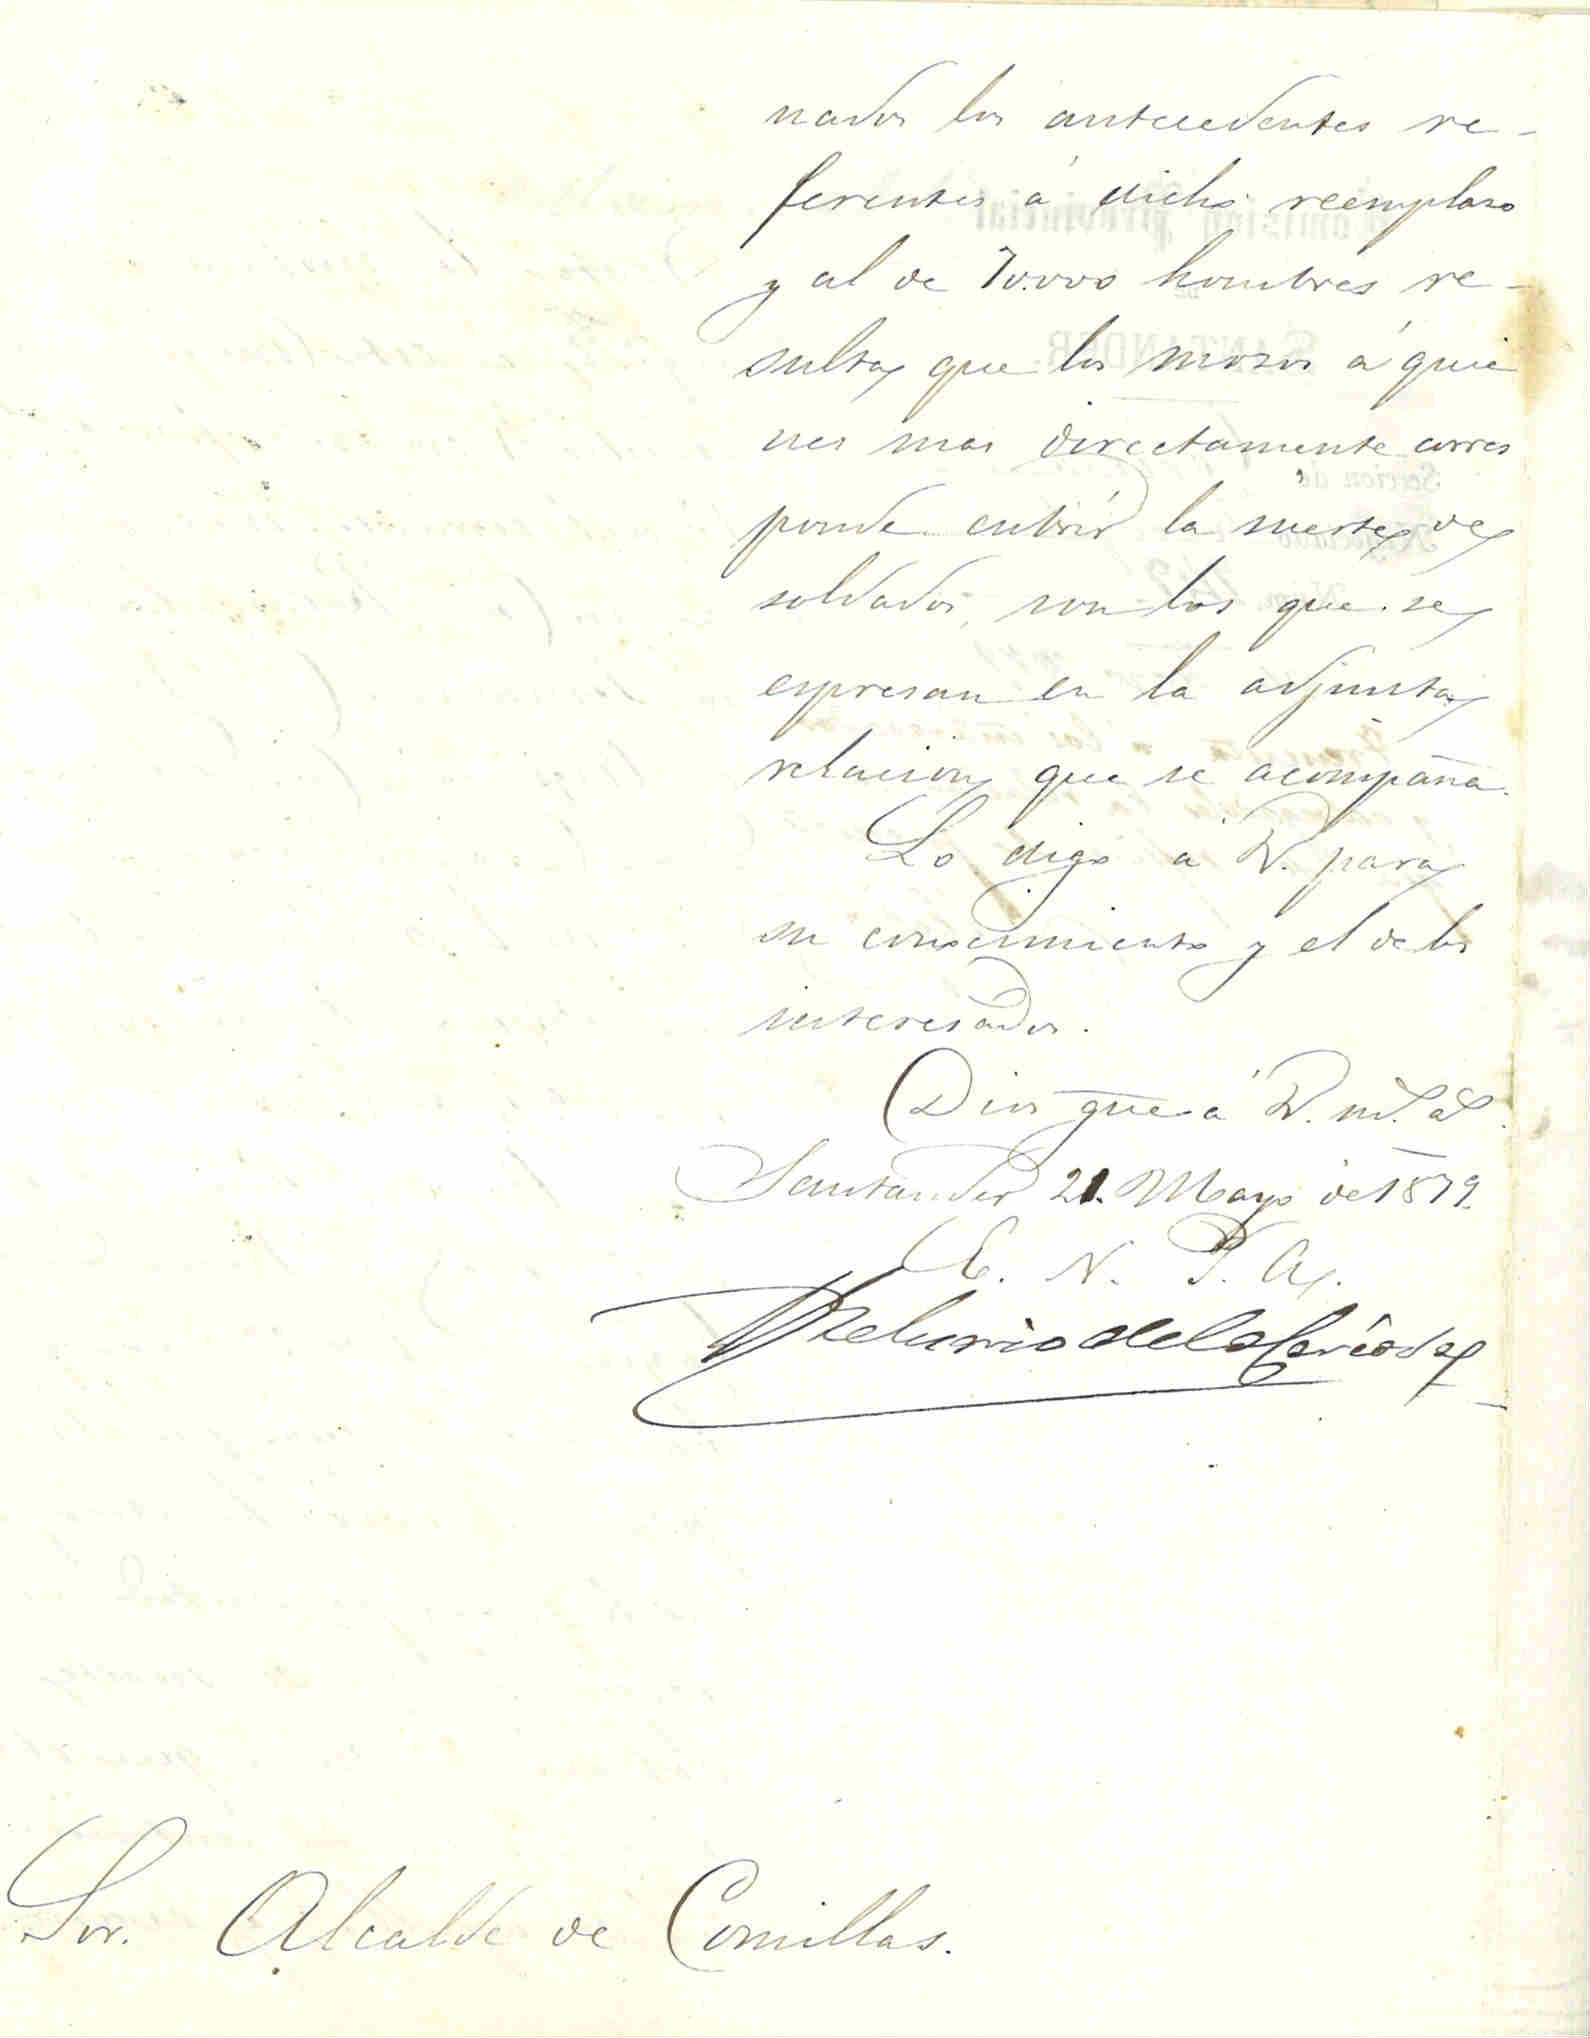 nados los antecedentes re-
ferentes á dicho reemplazo
y al de 70.000 hombres re-
sulta que los mozos á quie
nes mas directamente corres
ponde cubrir la suerte de
soldados, son los que se
espresan en la adjunta
relacion que se acompaña.
Lo digo á V. para
su conocimiento y el de los
interesados.
Dios gue á V. ms. as.
Santander 21. Mayo de 1879.
E. V. P. A.
de la
Sor. Alcalde de Comillas.